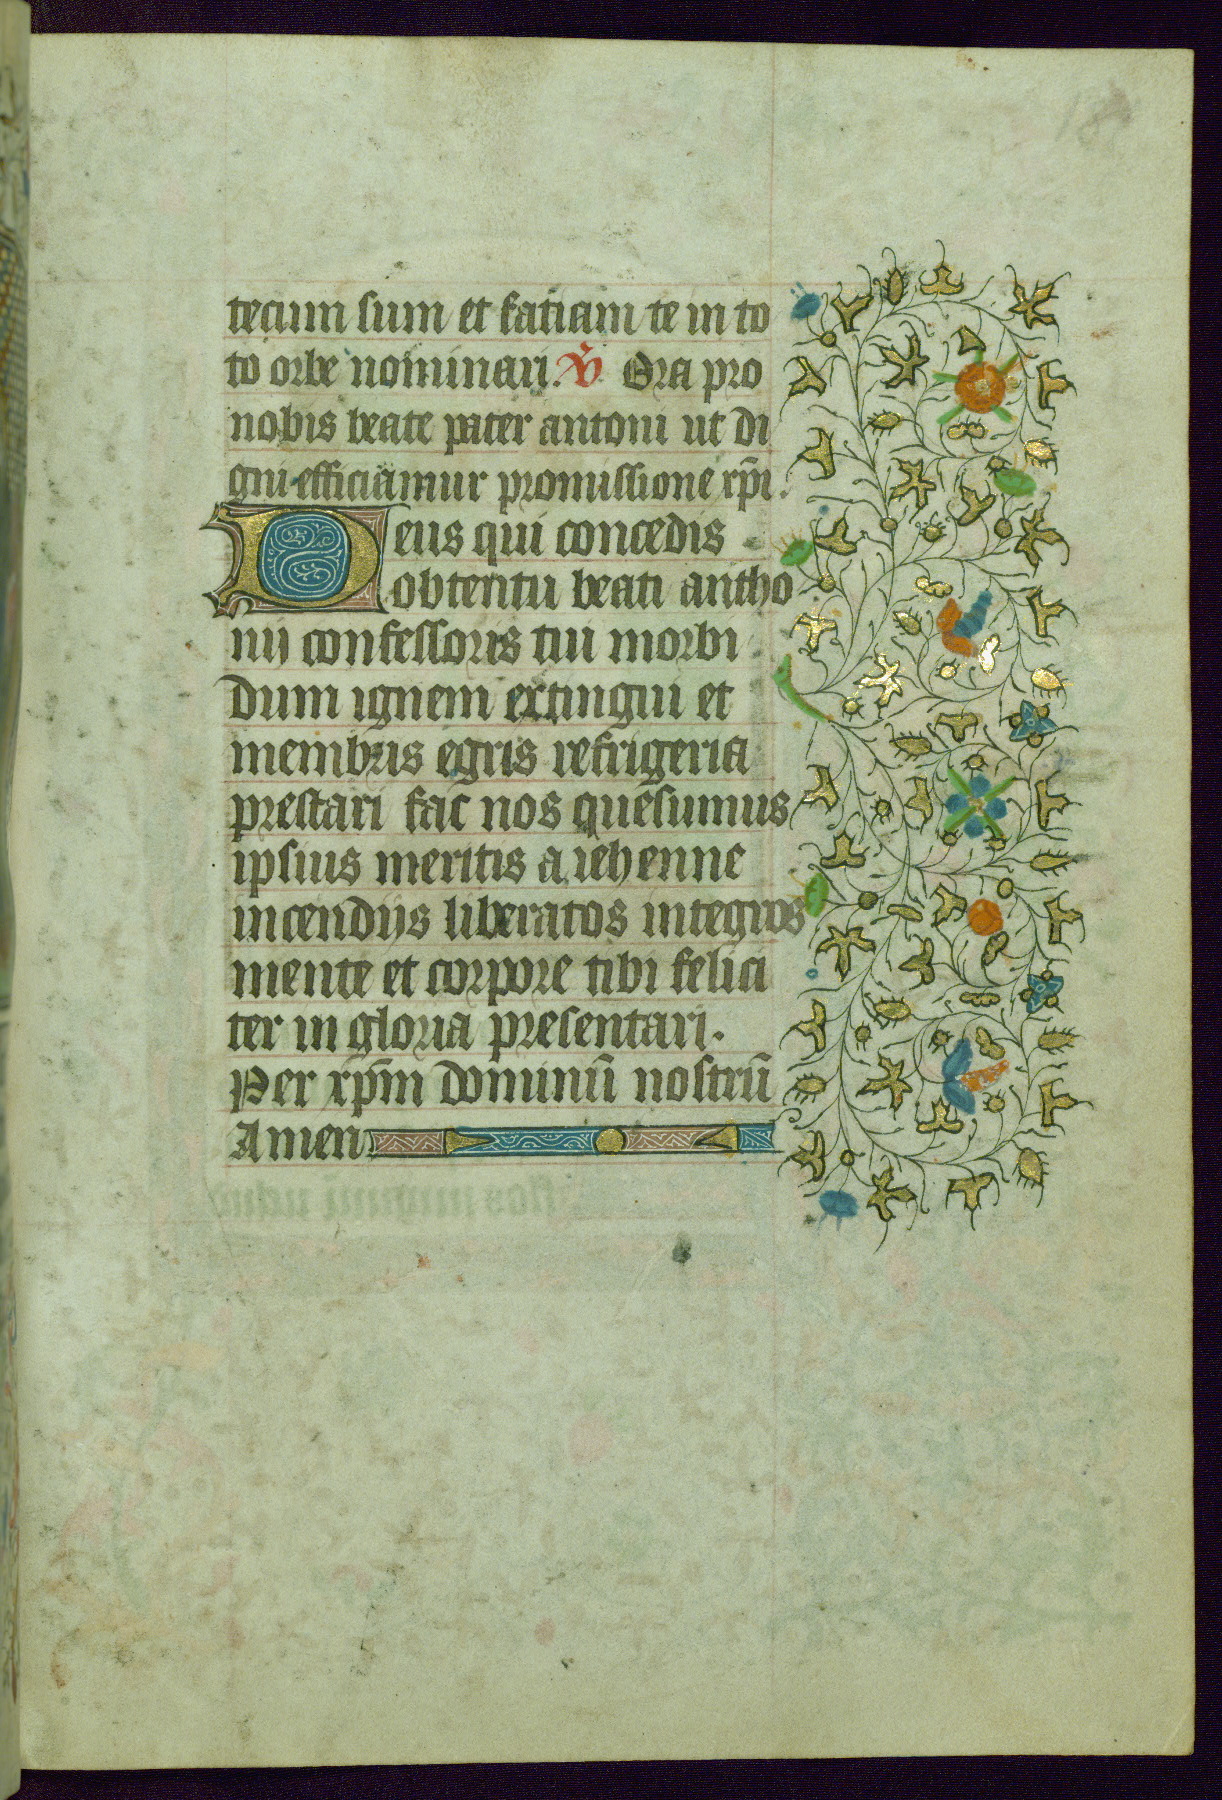 18
tecum sum et fatiam te in to
to orbe nominari. v̄ Ora pro
nobis beate pater antoni ut di
gni efficiamur promissione xp̄i.
Deus qui concedis
obtentu beati antho
nij confessoris tui morbi
dum ignem extingui et
membris egris refrigeria
prestari fac nos quesumus
ipsius meritis a iehenne
incendijs liberatos integros
mente et corpore tibi felici
ter in gloria presentari.
Per xp̄m dominū nostrū
Amen